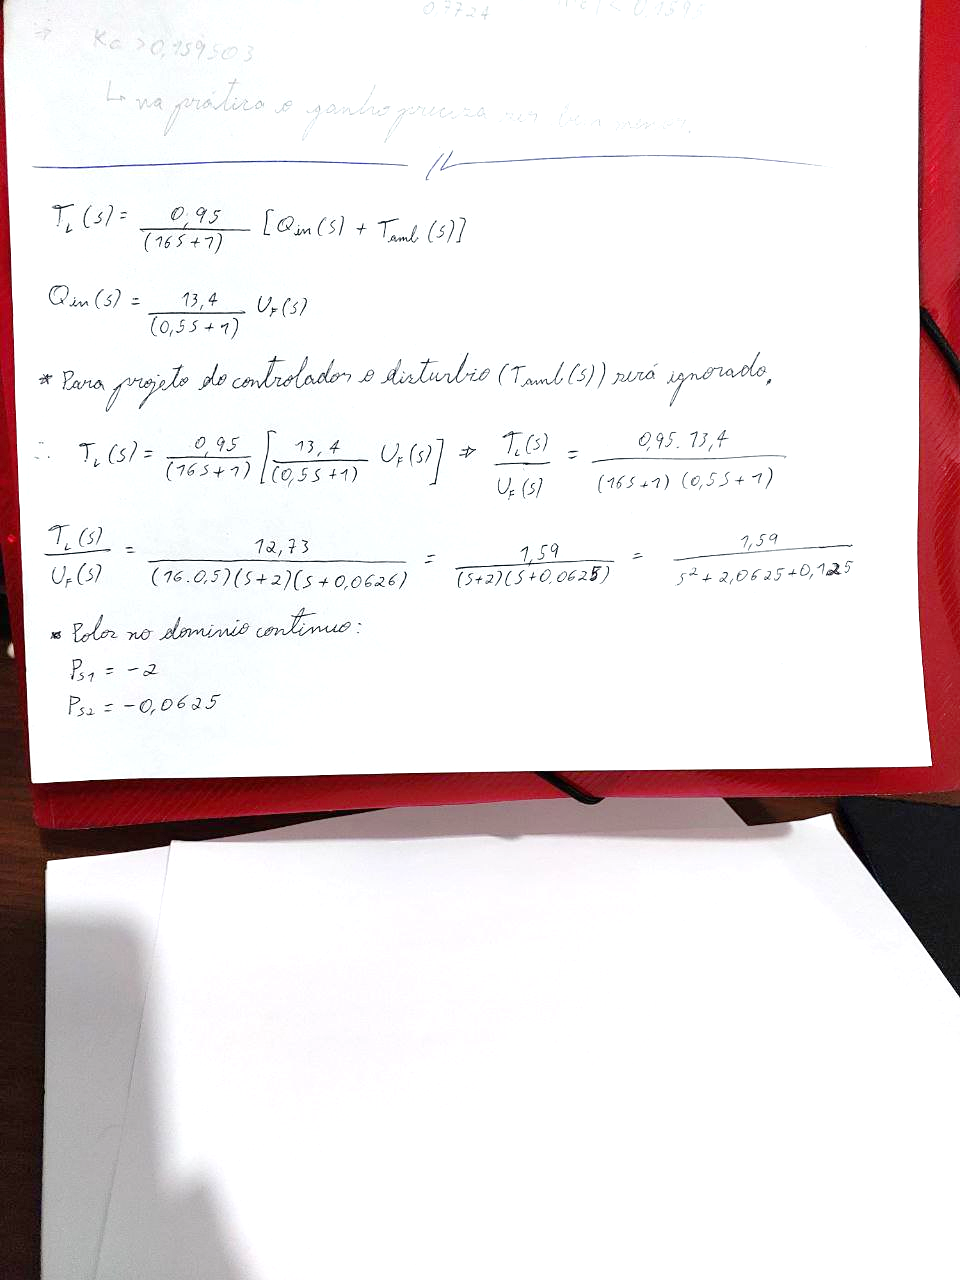 0,7724 < 0,1595
⇒ Kc > 0,159503
↳ na prática o ganho precisa ser bem menor.
T_L(s) = 0,95/(16s+1) [Q_in(s) + T_amb(s)]
Q_in(s) = 13,4/(0,5s+1) U_F(s)
* Para projeto do controlador o distúrbio (T_amb(s)) será ignorado.
∴ T_L(s) = 0,95/(16s+1) [13,4/(0,5s+1) U_F(s)] ⇒ T_L(s)/U_F(s) = 0,95.13,4/(16s+1)(0,5s+1)
T_L(s)/U_F(s) = 12,73/(16.0,5)(s+2)(s+0,0626) = 1,59/(s+2)(s+0,0625) = 1,59/s²+2,0625+0,125
* Polos no dominio continuo:
P_s1 = -2
P_s2 = -0,0625